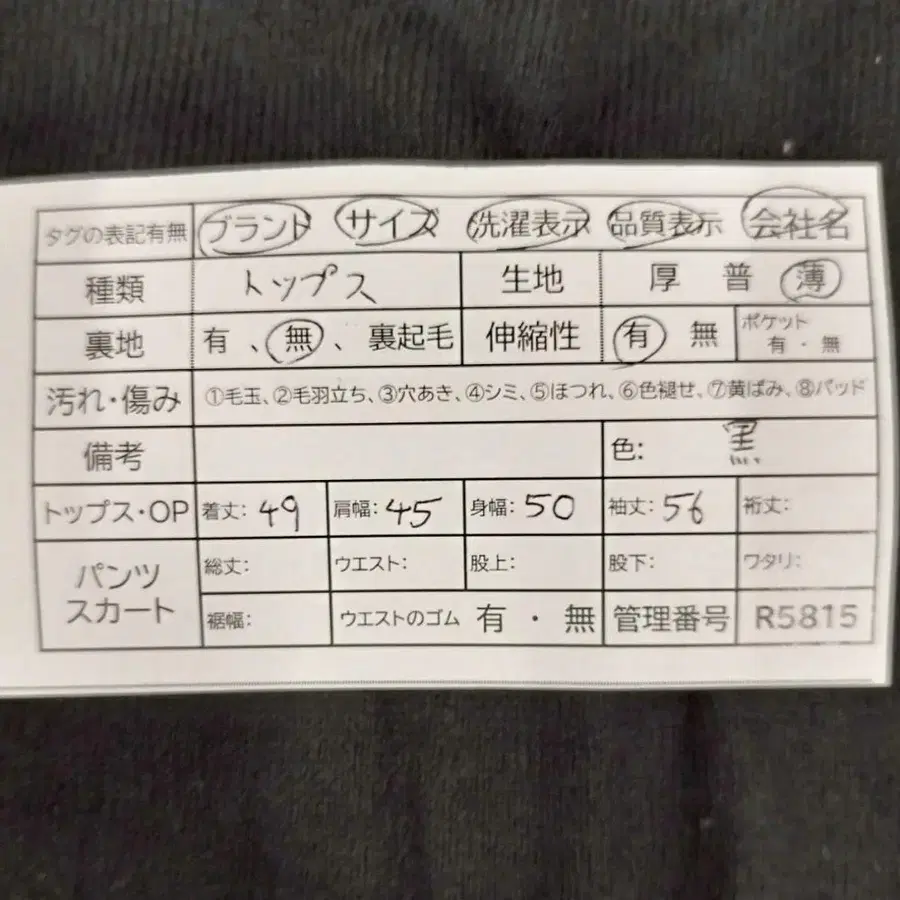 タグの表記有無 ブランド サイズ 洗濯表示 品質表示 会社名
種類 トップス 生地 厚 普 薄
裏地 有 、 無 、 裏起毛 伸縮性 有 無 ポケット 有 ・ 無
汚れ・傷み ①毛玉、②毛羽立ち、③穴あき、④シミ、⑤ほつれ、⑥色褪せ、⑦黄ばみ、⑧パッド
備考 色: 黒
トップス・OP 着丈: 49 肩幅: 45 身幅: 50 袖丈: 56 裄丈:
パンツ スカート 総丈: ウエスト: 股上: 股下: ワタリ:
裾幅: ウエストのゴム 有 ・ 無 管理番号 R5815